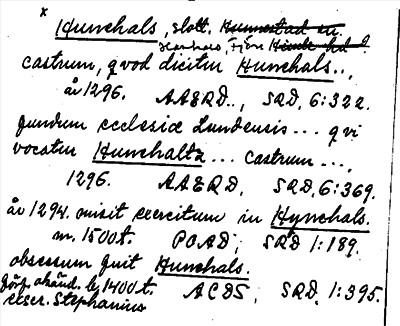 x
Hunehals, slott. Hunnestad sn.
Hanhals, Fjäre Himle hd?
castrum, qvod dicitur Hunehals..,
år 1296. AAERD.., SRD, 6:322.
fundum ecclesiæ Lundensis... qvi
vocatur Hunehaltz... castrum...,
1296. AAERD, SRD, 6:369.
år 1294. misit exercitum in Hynehals.
m. 1500t. POAD, SRD 1:189.
obsessum fuit Hunehals.
förf. okänd. bj 1400t. ACDS, SRD, 1:395.
excer. Stephanius